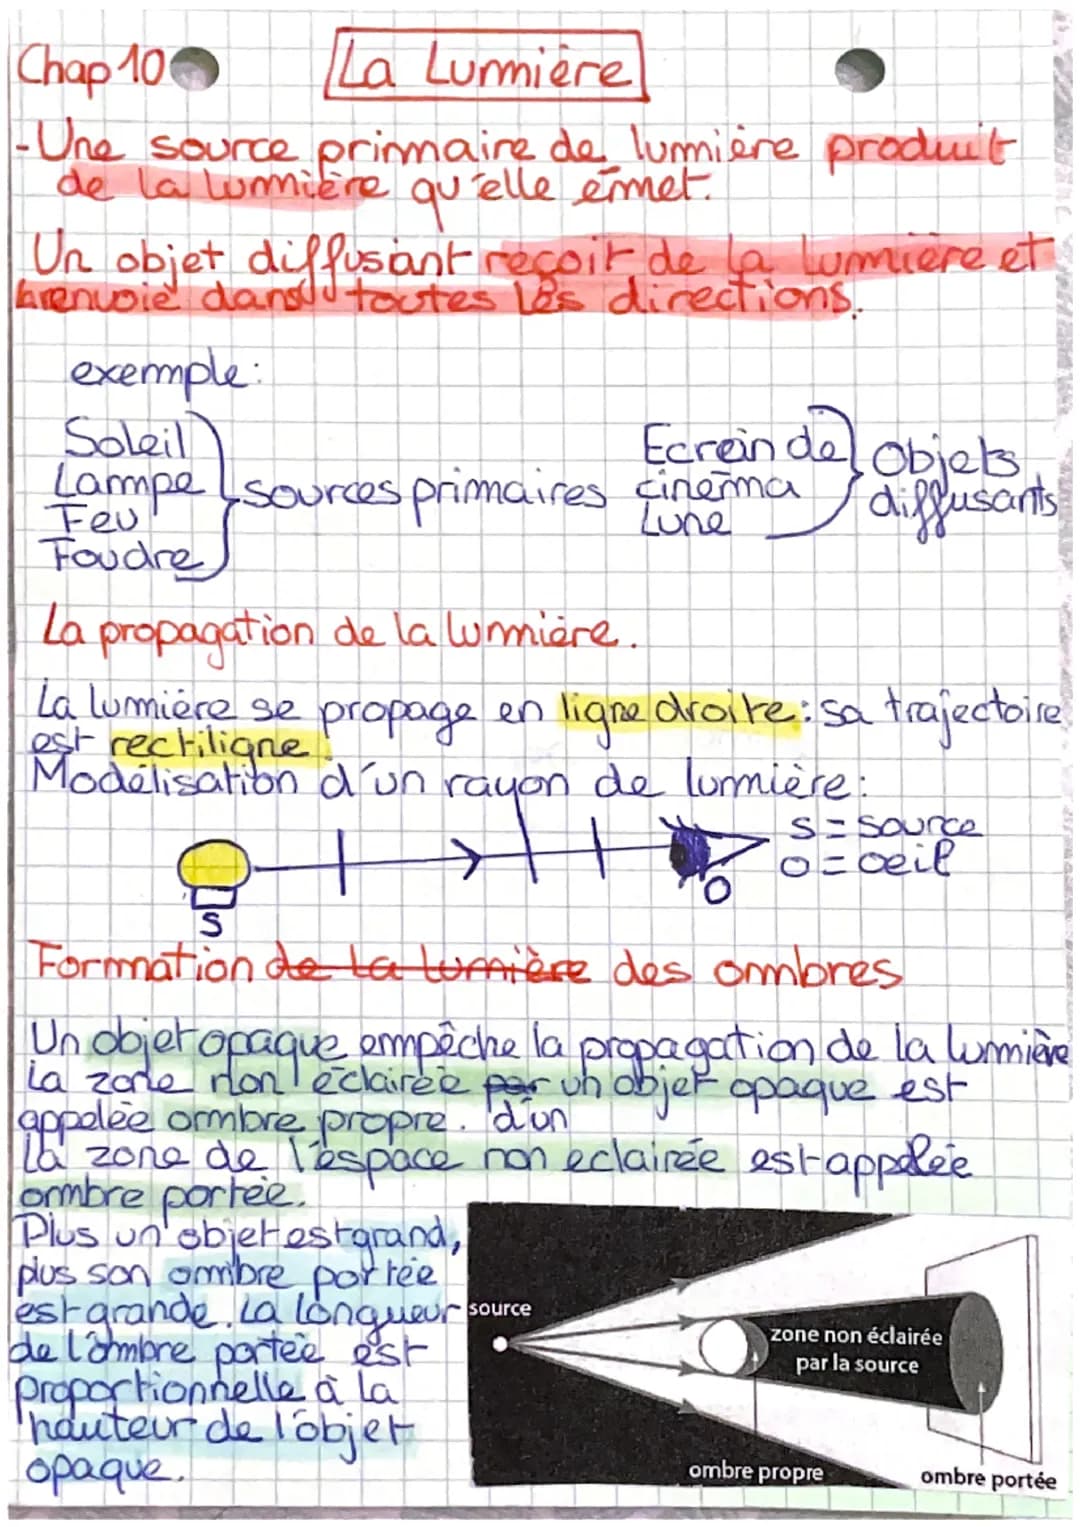 Chap 10 La Lumière
- Une source primaire de lumière produit
de la lumière qu'elle émet.
Un objet diffusant reçoit de la lumière et
la renvoie dans toutes les directions.
exemple:
Soleil
Lampe
Feu
Foudre
sources primaires
Ecrain de
cinéma
Lune
Objets
diffusants
La propagation de la lumière.
La lumière se propage en ligne droite : sa trajectoire
est rectiligne.
Modélisation d'un rayon de lumière :
S = source
O = oeil
O
S
Formation de la lumière des ombres
Un objet opaque empêche la propagation de la lumière
La zone non éclairée par un objet opaque est
appelée ombre propre. d'un
La zone de l'espace non eclairée est appelée
ombre portée.
Plus un objet est grand,
plus son ombre portée
est grande. La longueur
de l'ombre portée est
proportionnelle à la
hauteur de l'objet
opaque.
source
zone non éclairée
par la source
ombre propre
ombre portée